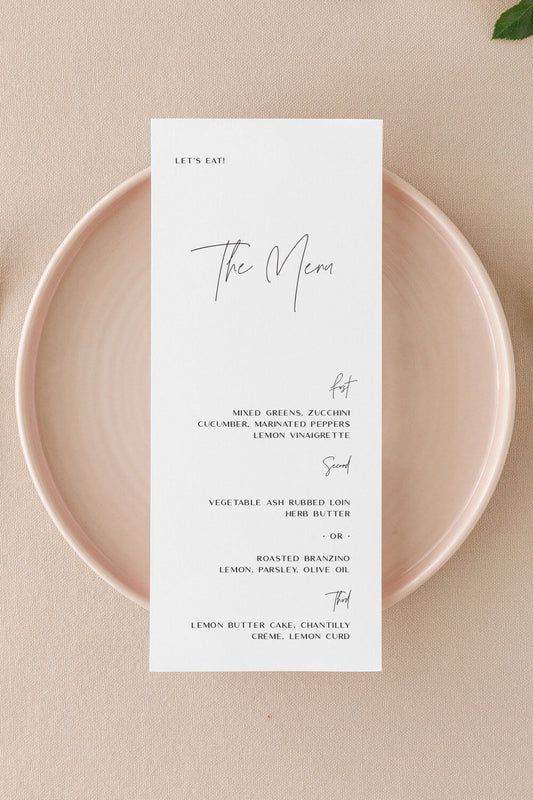 LET'S EAT!
The Menu
First
MIXED GREENS, ZUCCHINI
CUCUMBER, MARINATED PEPPERS
LEMON VINAIGRETTE
Second
VEGETABLE ASH RUBBED LOIN
HERB BUTTER
· OR ·
ROASTED BRANZINO
LEMON, PARSLEY, OLIVE OIL
Third
LEMON BUTTER CAKE, CHANTILLY
CRÈME, LEMON CURD